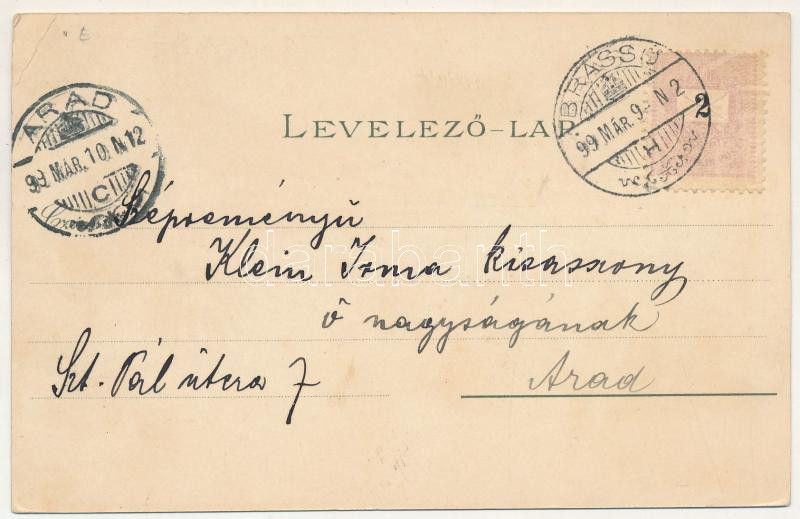 LEVELEZŐ-LAP
BRASSÓ
99 MÁR. 9. N 2
H
2
ARAD
99 MÁR. 10. N 12
C
Szépreményű
Klein Irma kisasszony
ő nagyságának
Szt. Pál útcza 7
Arad
darabanth